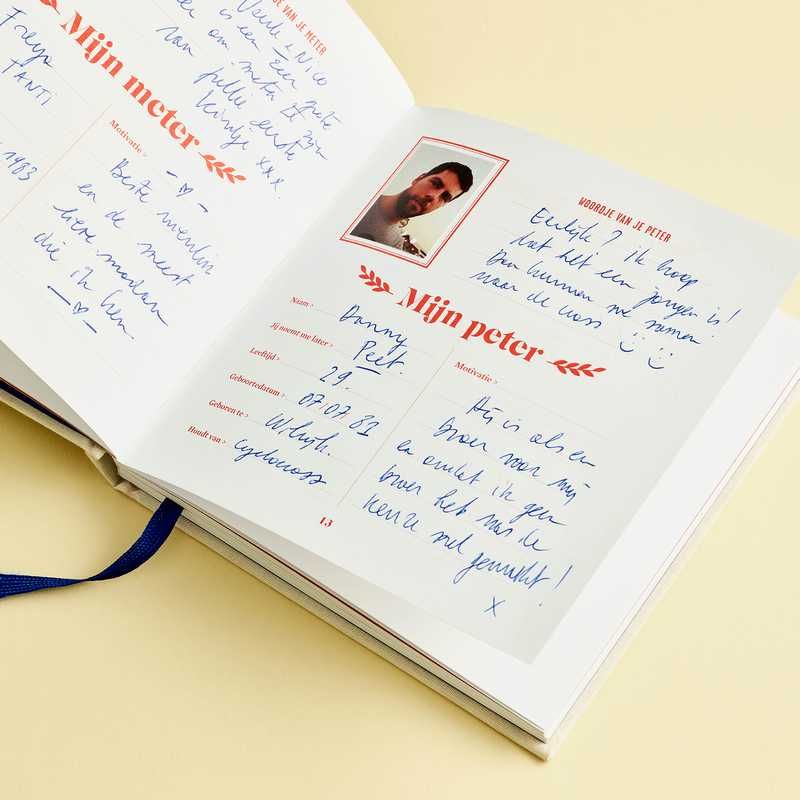 JE VAN JE METER
Veerle & Nico
is een Eer
om meter te zijn
van jullie eerste
kindje xxx
Mijn meter
Freya
TANTI
1983
Motivatie >
Beste vriendin
en de meest
lieve madam
die ik ken.
WOORDJE VAN JE PETER
Eerlijk? ik hoop
dat het een jongen is!
Dan kunnen we samen
naar de cross
Mijn peter
Naam > Danny
Jij noemt me later > Peet.
Leeftijd > 29.
Geboortedatum > 07.07.81
Geboren te > Wilrijk.
Houdt van > cyclocross
Motivatie >
Hij is als een
broer voor mij
en omdat ik geen
broer heb was de
keuze snel gemaakt!
x
13